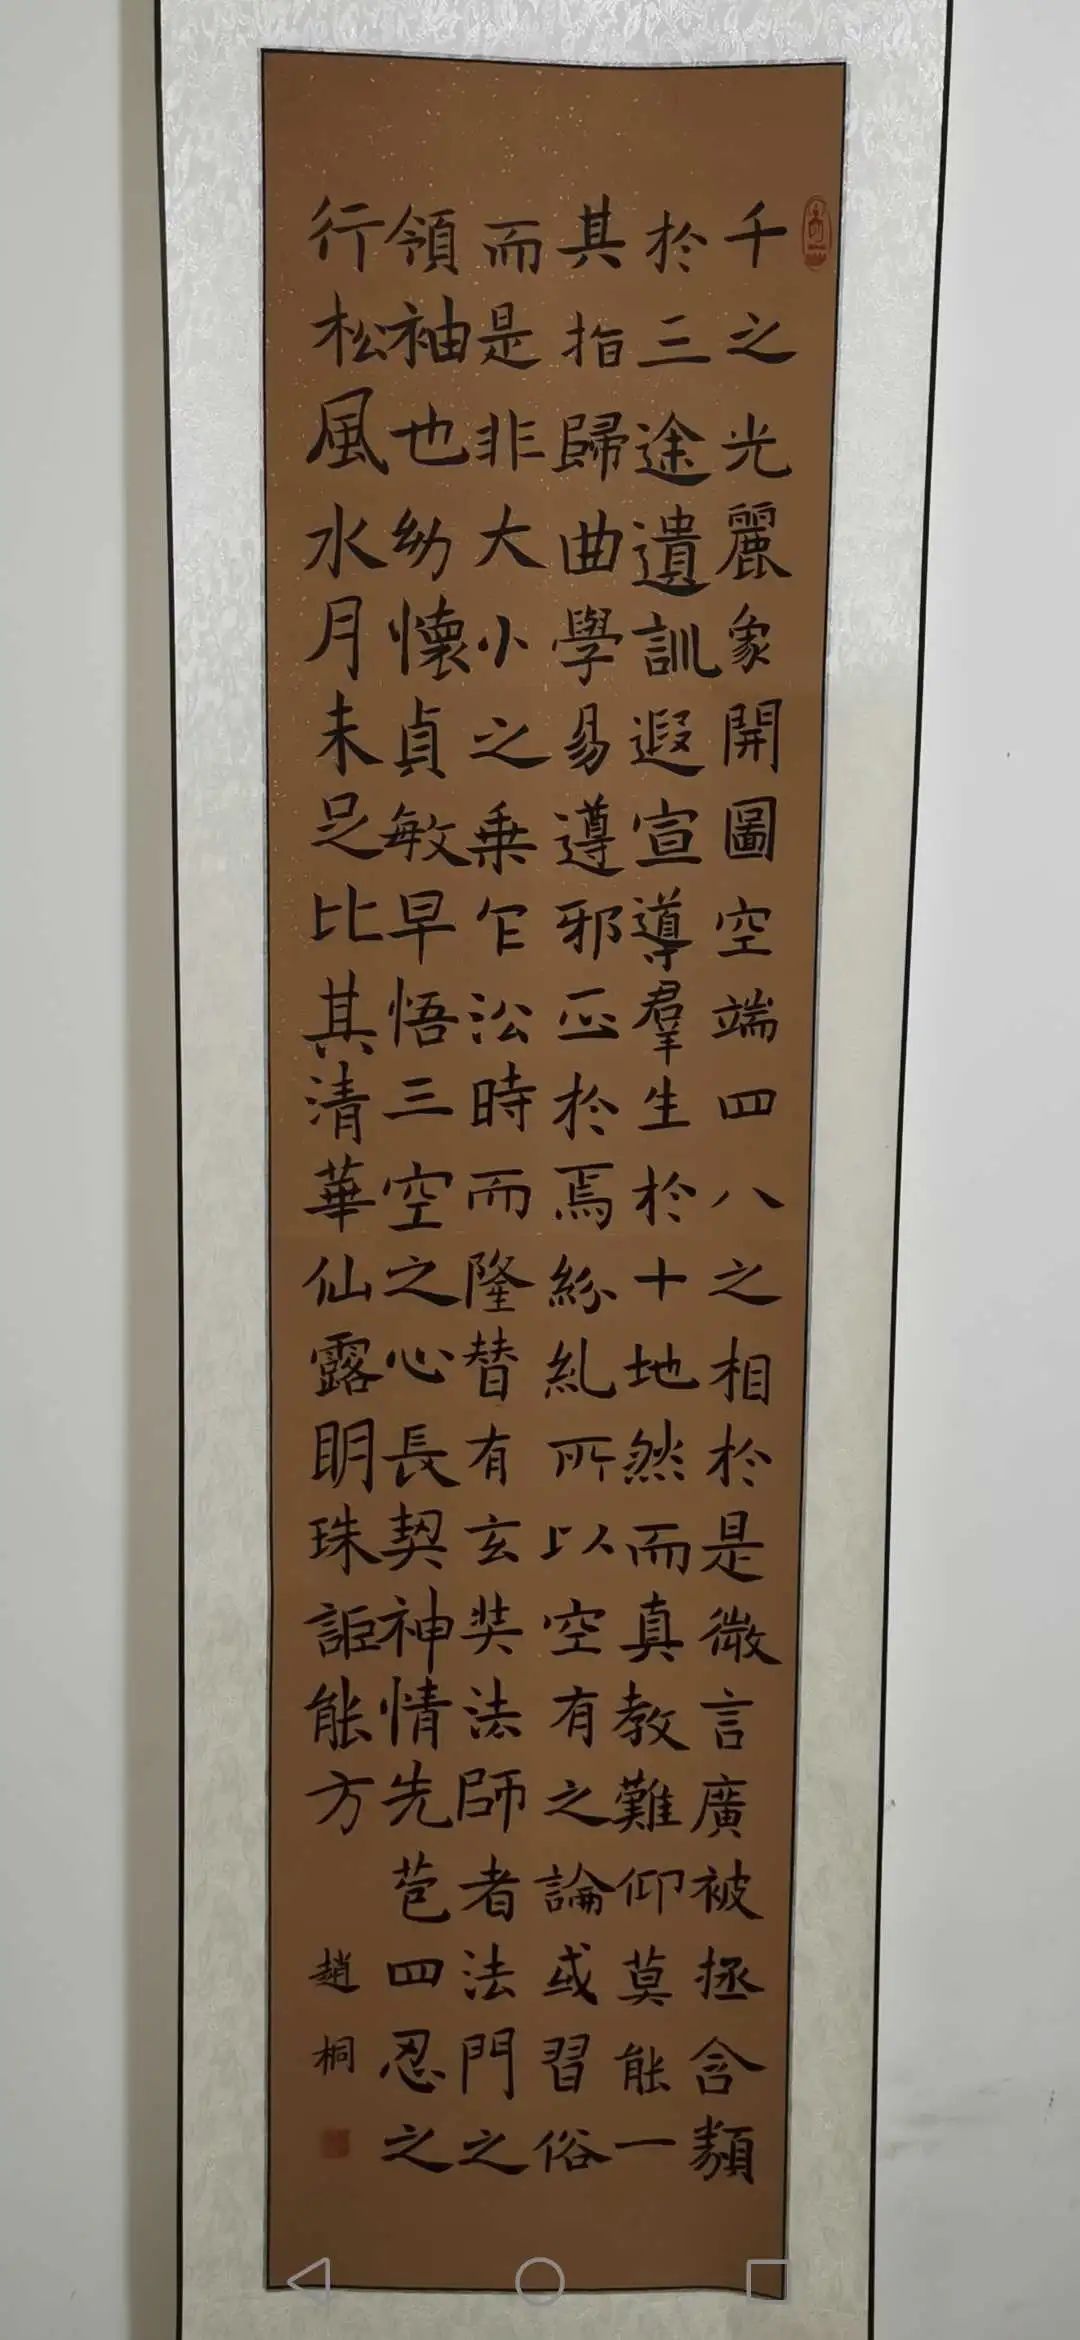 千之光麗象開圖空端四八之相於是微言廣被拯含類
於三途遺訓遐宣導羣生於十地然而真教難仰莫能一
其指歸曲學易遵邪正於焉紛糺所以空有之論或習俗
而是非大小之乗乍沿時而隆替有玄奘法師者法門之
領袖也幼懷貞敏早悟三空之心長契神情先苞四忍之
行松風水月未足比其清華仙露明珠詎能方
趙桐